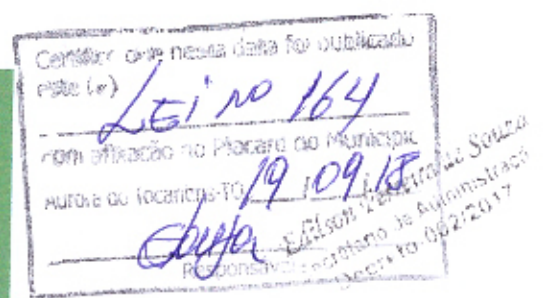 Certifico que nesta data foi publicado
este (a)
LEI Nº 164
com afixação no Placard do Município
Aurora do Tocantins-TO 19 / 09 / 18
Responsável
Edilson Souza
Secretário de Administração
Decreto 002/2017